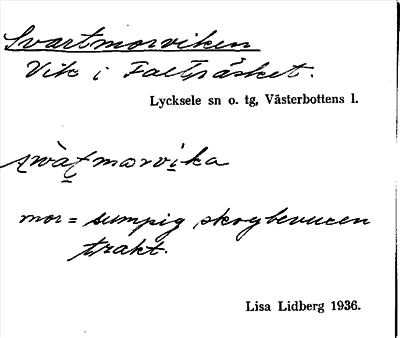 Svartmorviken
Vik i Falträsket.
Lycksele sn o. tg, Västerbottens l.
mor = sumpig, skogbevuxen
trakt.
Lisa Lidberg 1936.